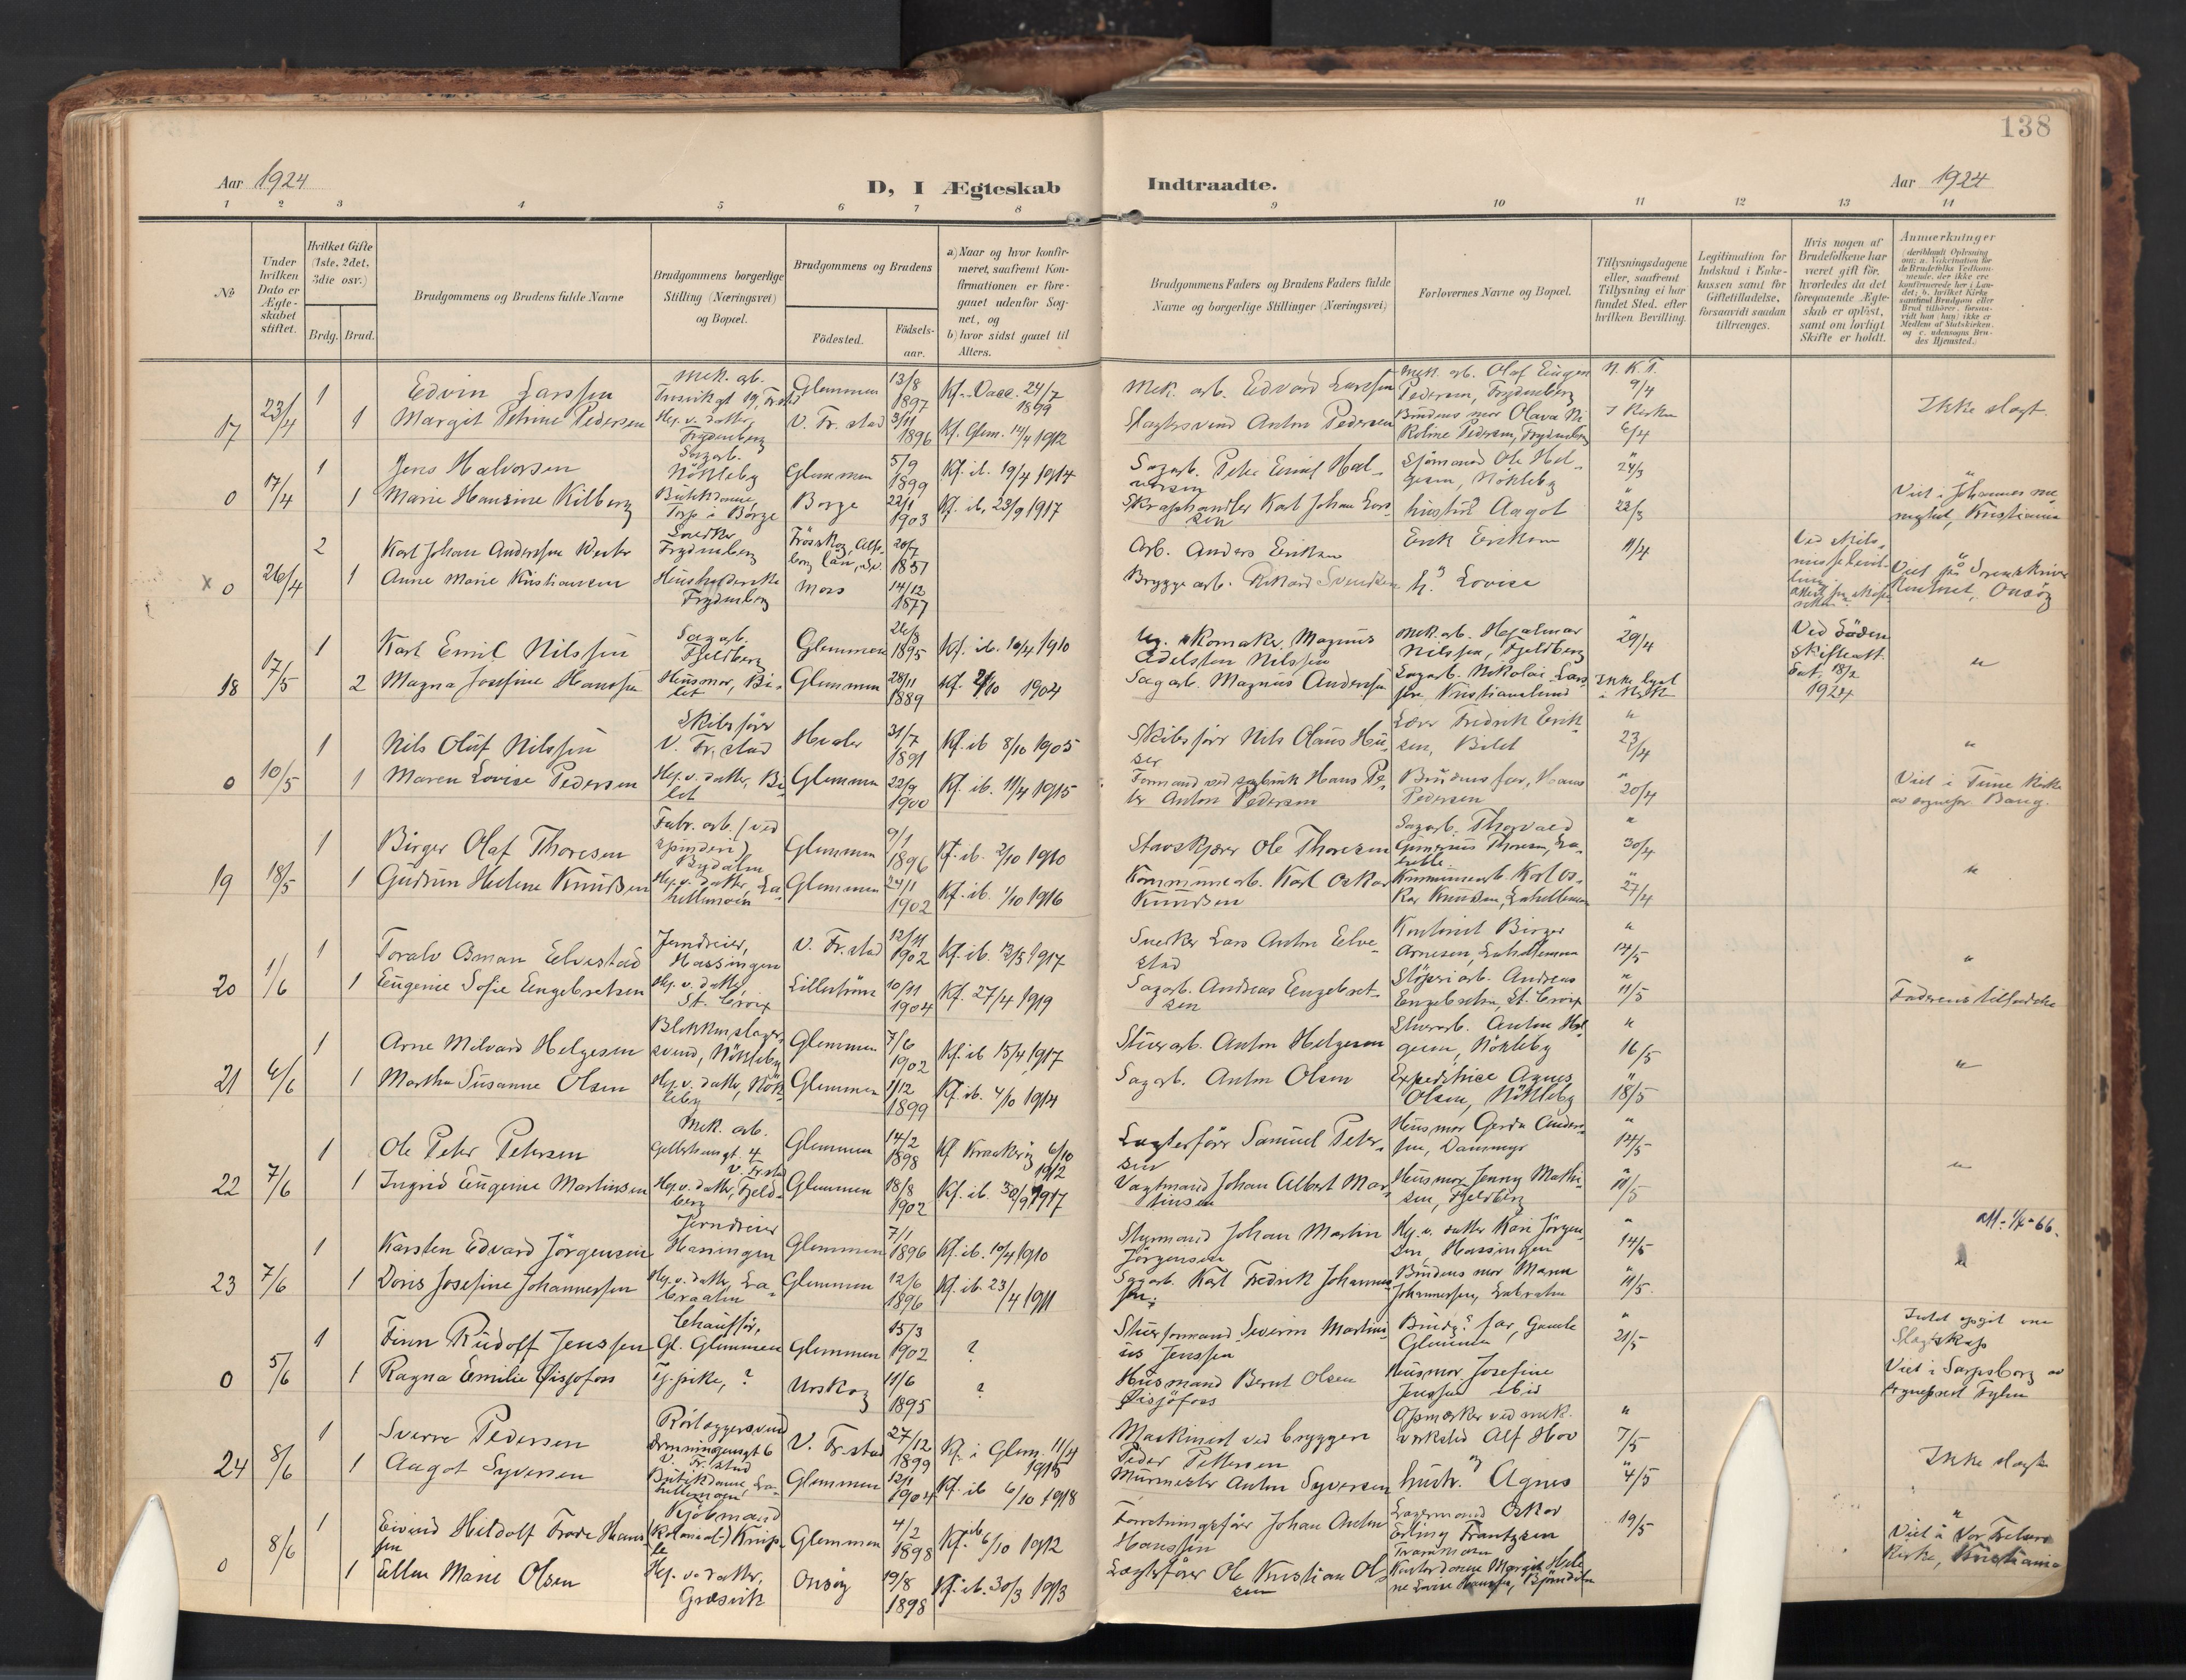 138
Aar 1924
D, I Ægteskab Indtraadte.
Aar 1924
1 2 3 4 5 6 7 8 9 10 11 12 13 14
No
Under hvilken Dato er Ægteskabet stiftet.
Hvilket Gifte (1ste, 2det, 3die osv.)
Brdg. Brud.
Brudgommens og Brudens fulde Navne
Brudgommens borgerlige Stilling (Næringsvei) og Bopæl.
Brudgommens og Brudens
Födested.
Födselsaar.
a) Naar og hvor konfirmeret, saafremt Konfirmationen er foregaaet udenfor Sognet, og
b) hvor sidst gaaet til Alters.
Brudgommens Faders og Brudens Faders fulde Navne og borgerlige Stillinger (Næringsvei)
Forlovernes Navne og Bopæl.
Tillysningsdagene eller, saafremt Tillysning ei har fundet Sted, efter hvilken Bevilling.
Legitimation for Indskud i Enkekassen samt for Giftetilladelse, forsaavidt saadan tiltrenges.
Hvis nogen af Brudefolkene har været gift för, hvorledes da det foregaaende Ægteskab er oplöst, samt om lovligt Skifte er holdt.
Anmerkninger
17 23/4
1 Edvin Larssen Mek. arb. Glemmen 13/8 1897 Kf. Vacc. 24/7 1899 Mek. arb. Edvard Larssen Mek. arb. Olaf Eugen Pedersen, Frydenberg N. K. T. 9/4
1 Margit Petrine Pedersen Hej. v. datter, Frydenberg V. Fr.stad 3/11 1896 Kf. Glem. 14/4 1912 Slagtersvend Anton Pedersen Brudens mor Olava Nikoline Pedersen, Frydenberg 6/4 Ikke slegt.
0 17/4
1 Jens Halvorsen Sagarb. Nökleby Glemmen 5/9 1899 Kf. ib. 19/4 1914 Sagarb. Peter Emil Halvorsen Sjömand Ole Helgesen, Nökleby " 24/3
1 Marie Hansine Kilberg Butikdame, Torp i Borge Borge 22/1 1903 Kf. ib. 23/9 1917 Skraphandler Karl Johan Larssen hustru Aagot " 22/3 Viet i Johannes menighet, Kristiania
x 0 26/4
2 Karl Johan Anderssen Snedker Frydenberg 20/7 1851 Arb. Anders Eriksen Erik Eriksen 11/4
1 Anne Marie Kristiansen Husholderske Frydenberg Moss 14/12 1877 Bryggearb. Rikard Svendsen h. Lovise Onsöy
18 17/5
1 Karl Emil Nilssen Sagarb. Fjeldberg Glemmen 26/8 1895 Kf. ib. 10/4 1910 Skomaker Magnus Adelsten Nilssen Mek. arb. Hjalmar Nilssen, Fjeldberg " 29/4 Ved döden Skifteatt. Dat. 18/2 1924
2 Magna Josefine Hanssen Husmor, Bilet Glemmen 28/11 1889 Kf. 2/10 1904 Sagarb. Magnus Anderssen Sagarb. Nikolai Larssen Kristianslund Ikke lyst
0 10/5
1 Nils Oluf Nilssen Skibsförer V. Fr.stad Hvaler 31/7 1891 Kf. ib 8/10 1905 Skibsförer Nils Olaus Lærer Fredrik Eriksen, Bilet " 23/4
1 Maren Lovise Pedersen Hej. v. datter, Bilet Glemmen 22/9 1900 Kf. ib. 11/4 1915 Formand ved Hans Peter Anton Pedersen Brudens far, Hans Pedersen " 20/4 Viet i Tune kirke av sognepr. Bang.
19 18/5
1 Birger Olaf Thoresen Fabr. arb. (ved spinderi) Bydalen Glemmen 9/1 1896 Kf. ib. 2/10 1910 Stavskjærer Ole Thoresen Sagarb. Thorvald Thoresen " 30/4
1 Gudrun Helene Knudsen Hej. v. datter, Lahellemoen Glemmen 24/1 1902 Kf. ib. 1/10 1916 Kommunearb. Karl Oskar Knudsen Kommunearb. Karl Oskar Knudsen, Lahellemoen " 27/4
20 1/6
1 Toralv Osman Elvestad Jerndreier, Hassingen V. Fr.stad 12/11 1902 Kf. ib. 13/5 1917 Snedker Lars Anton Elvestad Kontorist Birger Arnesen, Lahellemoen " 14/5
1 Eugenie Sofie Engebretsen Hej. v. datter St. Croix Lilleström 10/11 1904 Kf. 27/4 1919 Sagarb. Andreas Engebretsen Stöperiarb. Andreas Engebretsen, St. Croix " 11/5 Faderens tilladelse
21 6/6
1 Arne Milvard Helgesen Blikkenslagersvend, Nökleby Glemmen 7/6 1902 Kf. ib 15/4 1917 Stuerarb. Anton Helgesen Stuerarb. Anton Helgesen, Nökleby " 16/5
1 Martha Susanne Olsen Hej. v. datter, Nökleby Glemmen 1/12 1899 Kf. ib. 4/10 1914 Sagarb. Anton Olsen Expeditrice Agnes Olsen, Nökleby " 18/5
22 7/6
1 Ole Peter Petersen Mek. arb. V. Fr.stad Glemmen 14/2 1898 Kf Kraakeröy 6/10 1912 Lægterförer Samuel Petersen Husmor Gerda Anderssen, Dammyr " 14/5
1 Ingrid Eugenie Martinsen Hej. v. datter, Fjeldberg Glemmen 18/8 1902 Kf. ib. 30/9 1917 Vagtmand Johan Albert Martinsen Husmor Jenny Mathisen, Fjeldberg " 11/5
23 7/6
1 Karsten Edvard Jörgensen Jerndreier Hassingen Glemmen 7/1 1896 Kf. ib. 10/4 1910 Styrmand Johan Martin Jörgensen Hej. v. datter Kari Jörgensen, Hassingen " 14/5
1 Doris Josefine Johannessen Hej. v. datter, Labraaten Glemmen 12/6 1896 Kf. ib. 23/4 1911 Sagarb. Karl Fredrik Johannessen Brudens mor Maren Johannessen, Labraaten " 11/5
0 5/6
1 Finn Rudolf Jenssen Chaufför, Gl. Glemmen Glemmen 15/3 1902 ? Stuerformand Severin Martinius Jenssen Brudg. far, Gamle Glemmen " 21/5 Intet opgit om Slegtskap
1 Ragna Emilie Øisjofoss Tj.pike, ? Urskog 11/6 1895 ? Husmand Bernt Olsen Øisjöfoss Husmor Josefine Jenssen ibid Viet i Sarpsborg av sogneprest
24 8/6
1 Sverre Pedersen Rörlæggersvend Dronningensgt 6 V. Fr.stad V. Fr.stad 27/12 1899 Kf. i Glem. 11/4 1915 Maskinist ved bryggeri Peder Pettersen Opmerker ved mek. verksted Alf Hov " 7/5
1 Aagot Syversen Butikdame, Lahellemoen Glemmen 12/1 1904 Kf. ib 6/10 1918 Murmester Anton Syversen hustr. Agnes " 4/5 Ikke slegt
0 8/6
1 Eivind Hildolf Frode Hanssen Kjöbmand (Kolonial-) Glemmen 4/2 1898 Kf. ib 6/10 1912 Forretningsförer Johan Anton Hanssen Lagermand Oskar Erling Frantzsen 19/5
1 Ellen Marie Olsen Hej. v. datter, Græsvik Onsöy 19/8 1898 Kf. ib. 30/3 1913 Lægterförer Ole Kristian Olsen Kontordame Viet i Vor Frelsers Kirke, Kristiania